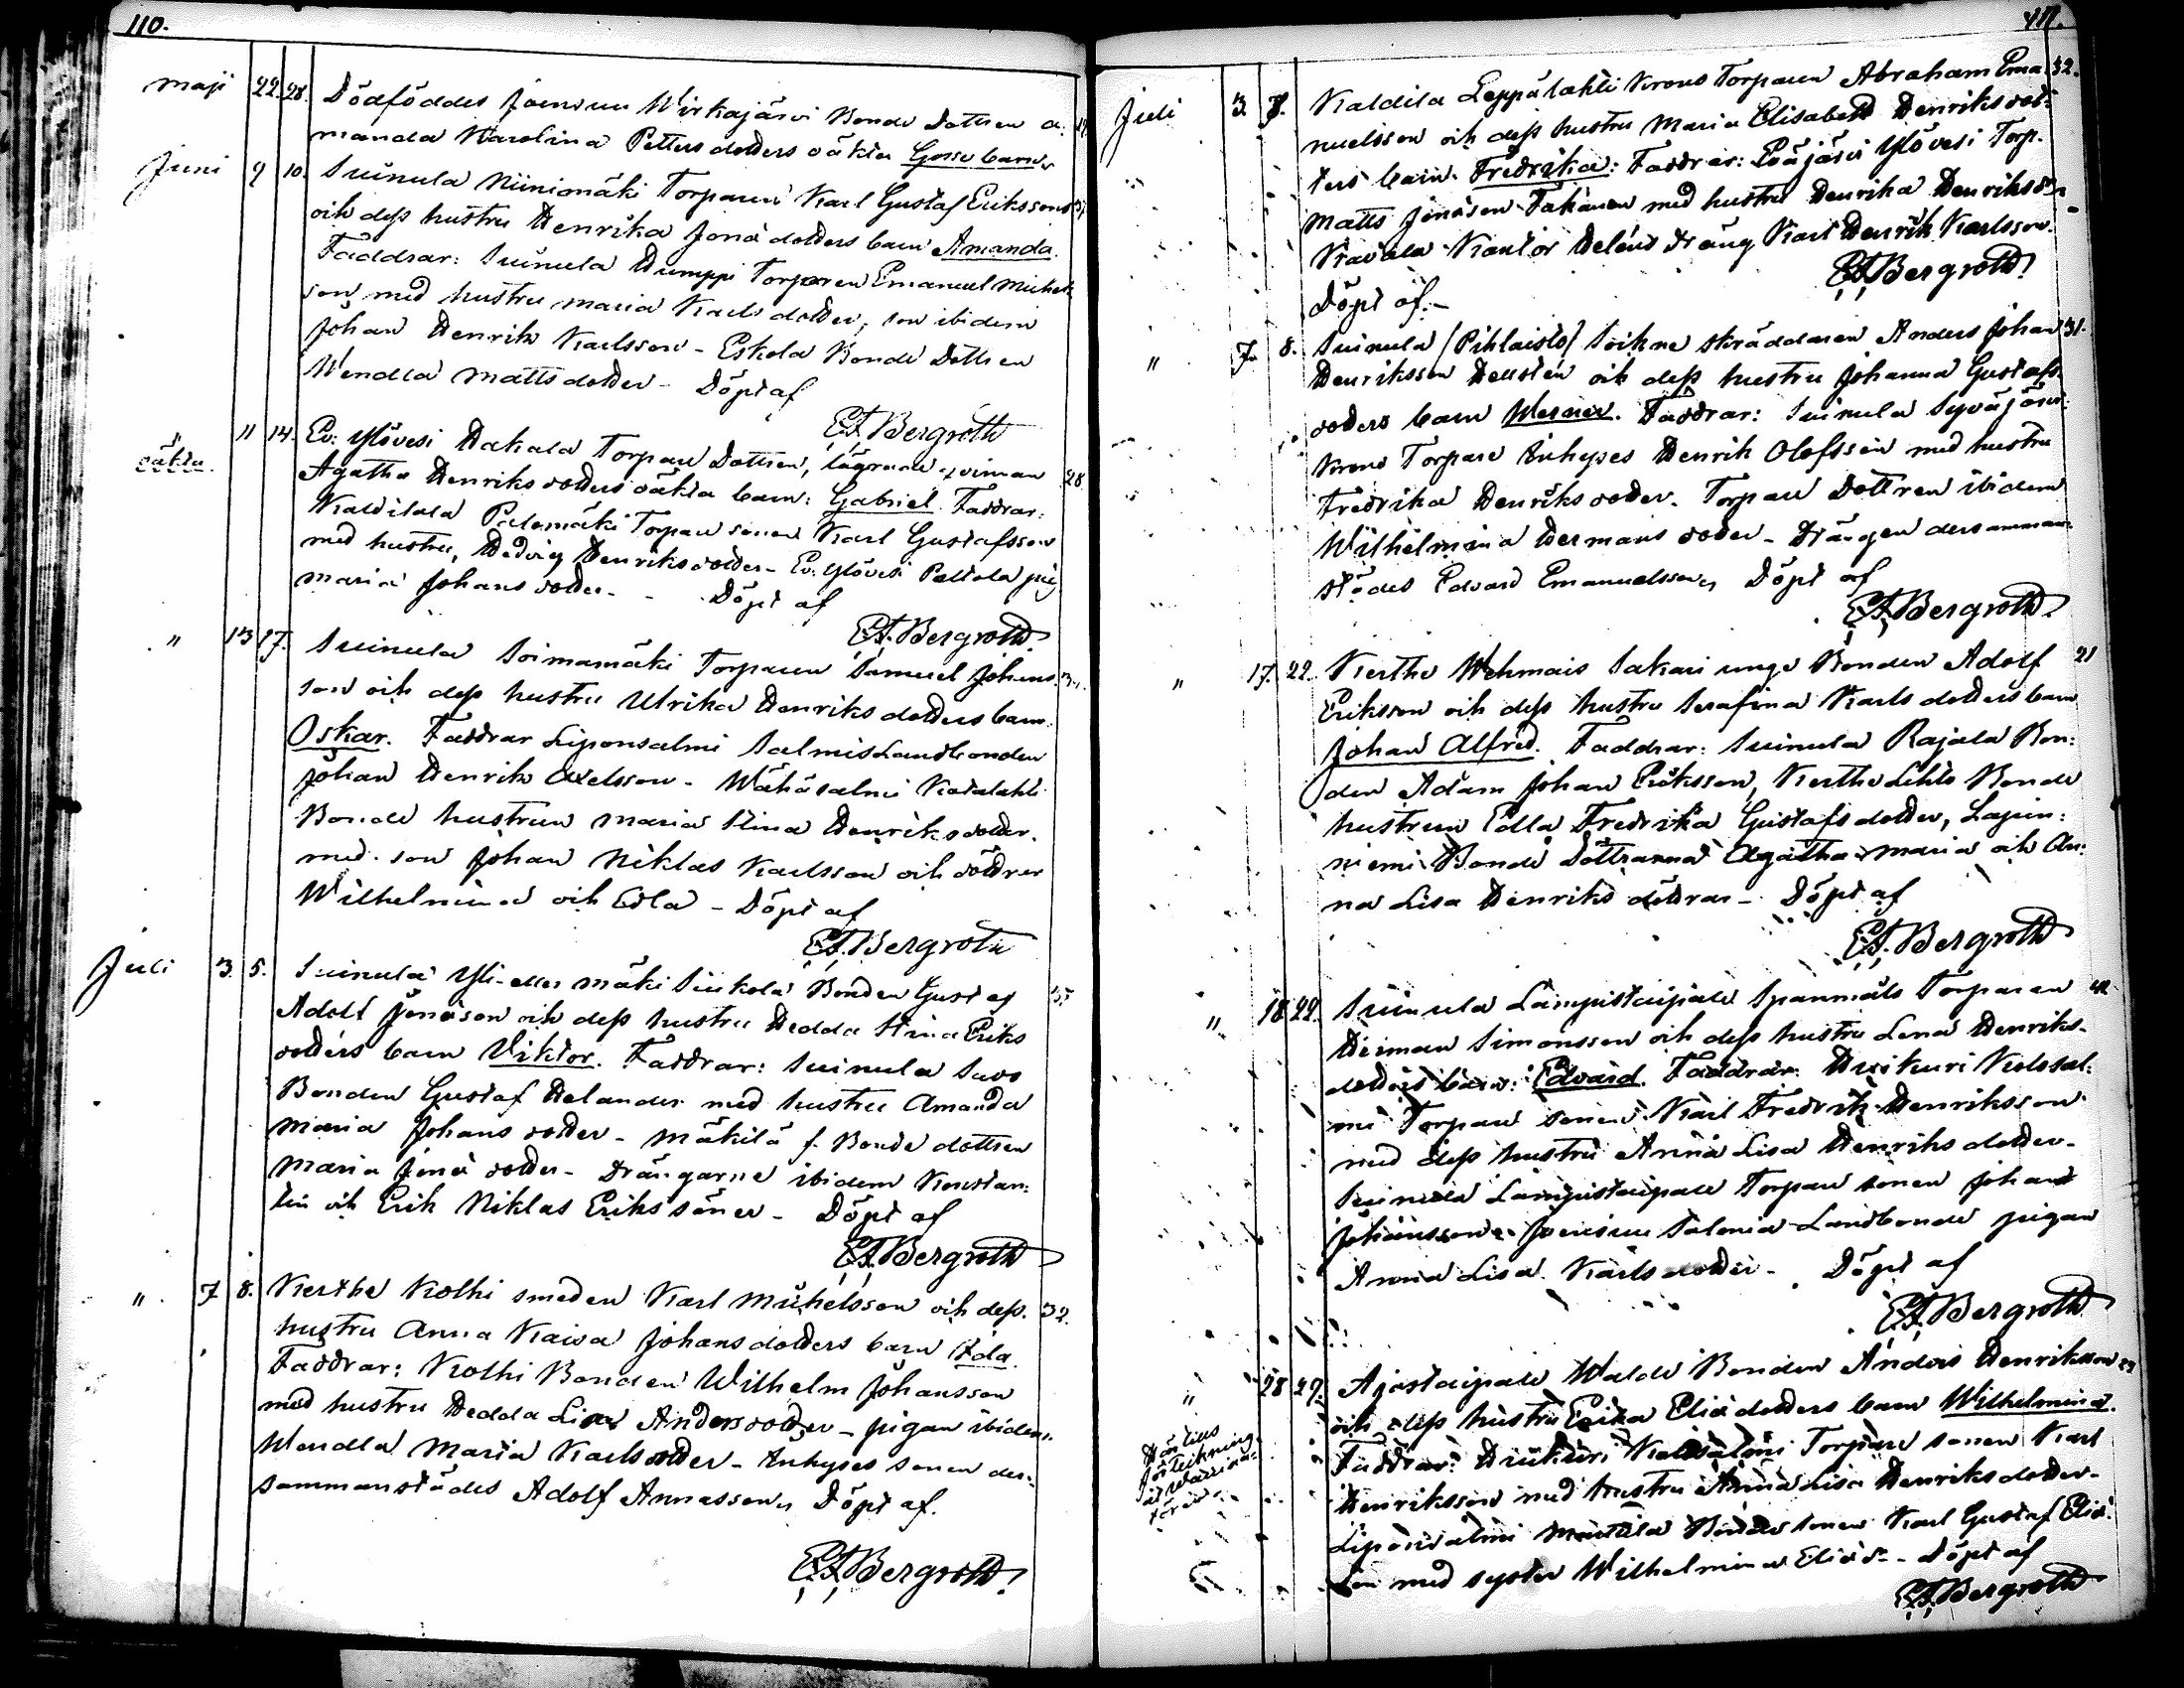 110.
maji 22. 28. Dödföddes Joensuu Wirkajärvi Bonde Dottren A:
manda Karolina Petters dotters oäkta Gosse barn
Juni 9 10. Suinula Niinimäki Torparen Karl Gustaf Erikssons
och dess hustru Henrika Jonä dotters barn Amanda.
Faddrar: Suinula Humppi Torparen Emanuel Michels
son med hustru Maria Karls dotter, son ibidem
Johan Henrik Karlsson - Eskola Bonde Dottren
Wendla Matts dotter - Döpt af
E.A. Bergroth
" 11 14. Ev: Ylövesi Hakala Torpare Dottren, lägrade qvinnan
oäkta. Agatha Henriks dotters oäkta barn: Gabriel. Faddrar: 28
Kaldilala Palomäki Torpare sonen Karl Gustafsson
med hustru, Hedvig Henriks dotter - Ev: Ylövesi Pollola pig
Maria Johans dotter - - Döpt af
E.A. Bergroth.
" 13 17. Suinula Soimamäki Torparen Samuel Johans
son och dess hustru Ulrika Henriks dotters barn:
Oskar. Faddrar Liponsalmi Salmis Landbonden
Johan Henrik Axelsson - Wähäsalmi Kotalahti
Bonde hustrun Maria Stina Henriks dotter.
med son Johan Niklas Karlsson och döttrar
Wilhelmina och Edla - Döpt af
E.A. Bergroth
Juli 3. 5. Suinula Yli-eller mäki Siukola Bonden Gustaf
Adolf Jonäson och dess hustru Hedda Stina Eriks
dotters barn Viktor. Faddrar: Suinula Savo
Bonden Gustaf Helander med hustru Amanda
Maria Johans dotter - Mäkilä f. Bonde dottren
Maria Jonä dotter - Drängarne ibidem Konstan:
tin och Erik Niklas Eriks söner - Döpt af
E.A. Bergroth
" 7 8. Kerthe Kolhi smeden Karl Michelsson och dess 32.
hustru Anna Kaisa Johans dotters barn Ida.
Faddrar: Kolhi Bonden Wilhelm Johansson
med hustru Hedda Lisa Anders dotter - pigan ibidem
Wendla Maria Karls dotter - Inhyses sonen der:
sammanstädes Adolf Annasson, Döpt af.
E.A. Bergroth.
111.
Juli 3. 8. Kaldila Leppälahti Krono Torparen Abraham Ema 32.
nuelsson och dess hustru Maria Elisabeth Henriks dot:
ters barn: Fredrika: Faddrar: Pääjärvi Ylövesi Torp.
Matts Jonäson Takanen med hustru Henrika Henriksdr
Kavala Kantor Deléns dräng Karl Henrik Karlsson.
Döpt af. -
E.A. Bergroth.
" 7. 8. Suinula (Pihlaisto) Sockne skräddaren Anders Johan 31.
Henriksson Hellstén och dess hustru Johanna Gustafs
dotters barn Werner. Faddrar: Suinula Syväjärvi
Krono Torpare Inhyses Henrik Olofsson med hustru
Fredrika Henriks dotter. Torpare Dottren ibidem
Wilhelmina Hermans dotter - Drängen dersamman:
städes Edvard Emanuelsson, Döpt af
E.A. Bergroth.
" 17. 22. Kerthe Wehmais Sakari unge Bonden Adolf 21
Eriksson och dess hustru Serafina Karls dotters barn
Johan Alfred. Faddrar: Suinula Rajala Bon:
den Adam Johan Eriksson, Kerthe Lehto Bonde
hustrun Edla Fredrika Gustafs dotter, Lapin:
niemi Bonde Döttrarna Agatha Maria och An:
na Lisa Henriks döttrar - Döpt af
E.A. Bergroth
" 18 22. Suinula Lampistaipale Spannmäls Torparen 42
Heiman Simonsson och dess hustru Lena Henriks-
dotters barn: Edvard. Faddrar: Huikuri Kolosal:
mi Torpare sonen Karl Fredrik Henriksson
med dess hustru Anna Lisa Henriks dotter -
Suinula Lampistaipale Torpare sonen Johan
Johansson - Joensuu Salmia Landbonde pigan
Anna Lisa Karls dotter - Döpt af
E.A. Bergroth
" 28 29. Ajostaipale Walde Bonden Anders Henriksson 29
och dess hustru Erika Eliä dotters barn Wilhelmina.
Faddrar: Huikuri Kolosalmi Torpare sonen Karl
Henriksson med hustru Anna Lisa Henriks dotter -
Liponsalmi Monttila Bonde sonen Karl Gustaf Eliä
son med syster Wilhelmina Eliä dr - Döpt af
E.A. Bergroth